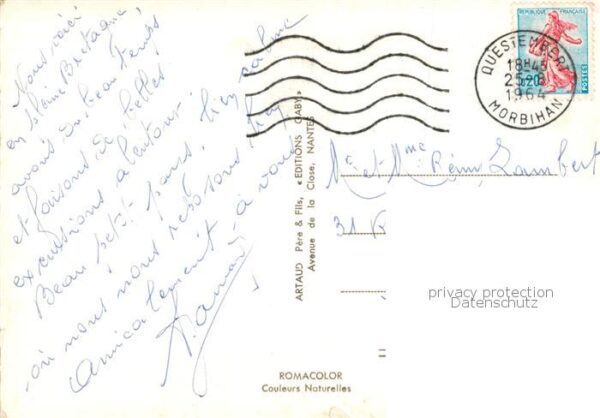 Nous voici
en pleine Bretagne
avons du beau temps
et faisons de belles
excursions à l'entour.
Beau petit pays, bien calme
où nous nous reposons bien
Amicalement à vous
ARTAUD Père & Fils, «EDITIONS GABY»
Avenue de la Close, NANTES
REPUBLIQUE FRANÇAISE
0,20
POSTES
QUESTEMBERT
18H45
25-8
1964
MORBIHAN
Mr et Mme Rémy Lambert
31 R
privacy protection
Datenschutz
ROMACOLOR
Couleurs Naturelles